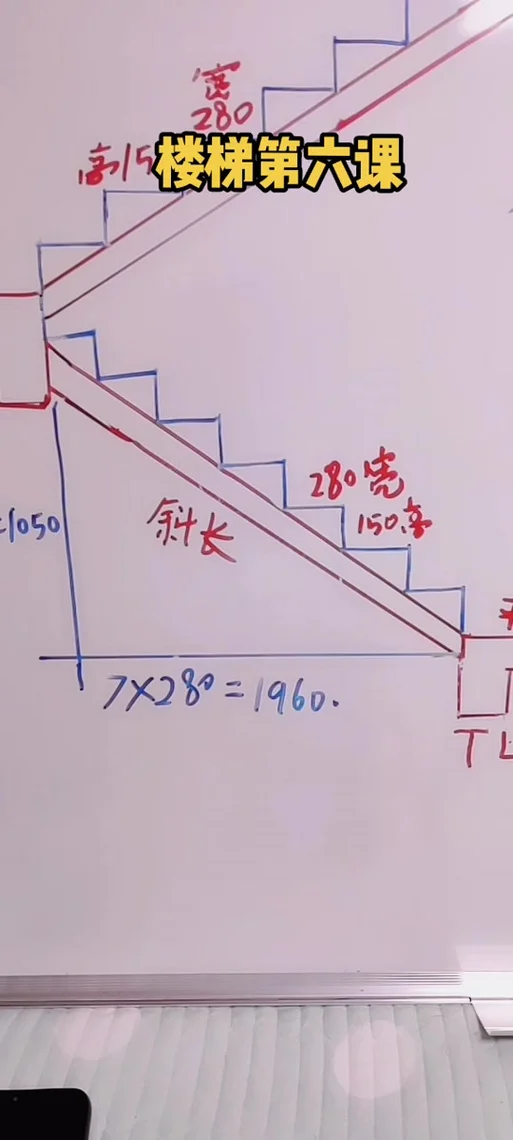 宽
280
高15
楼梯第六课
280宽
150高
=1050
斜长
7×280=1960.
TL